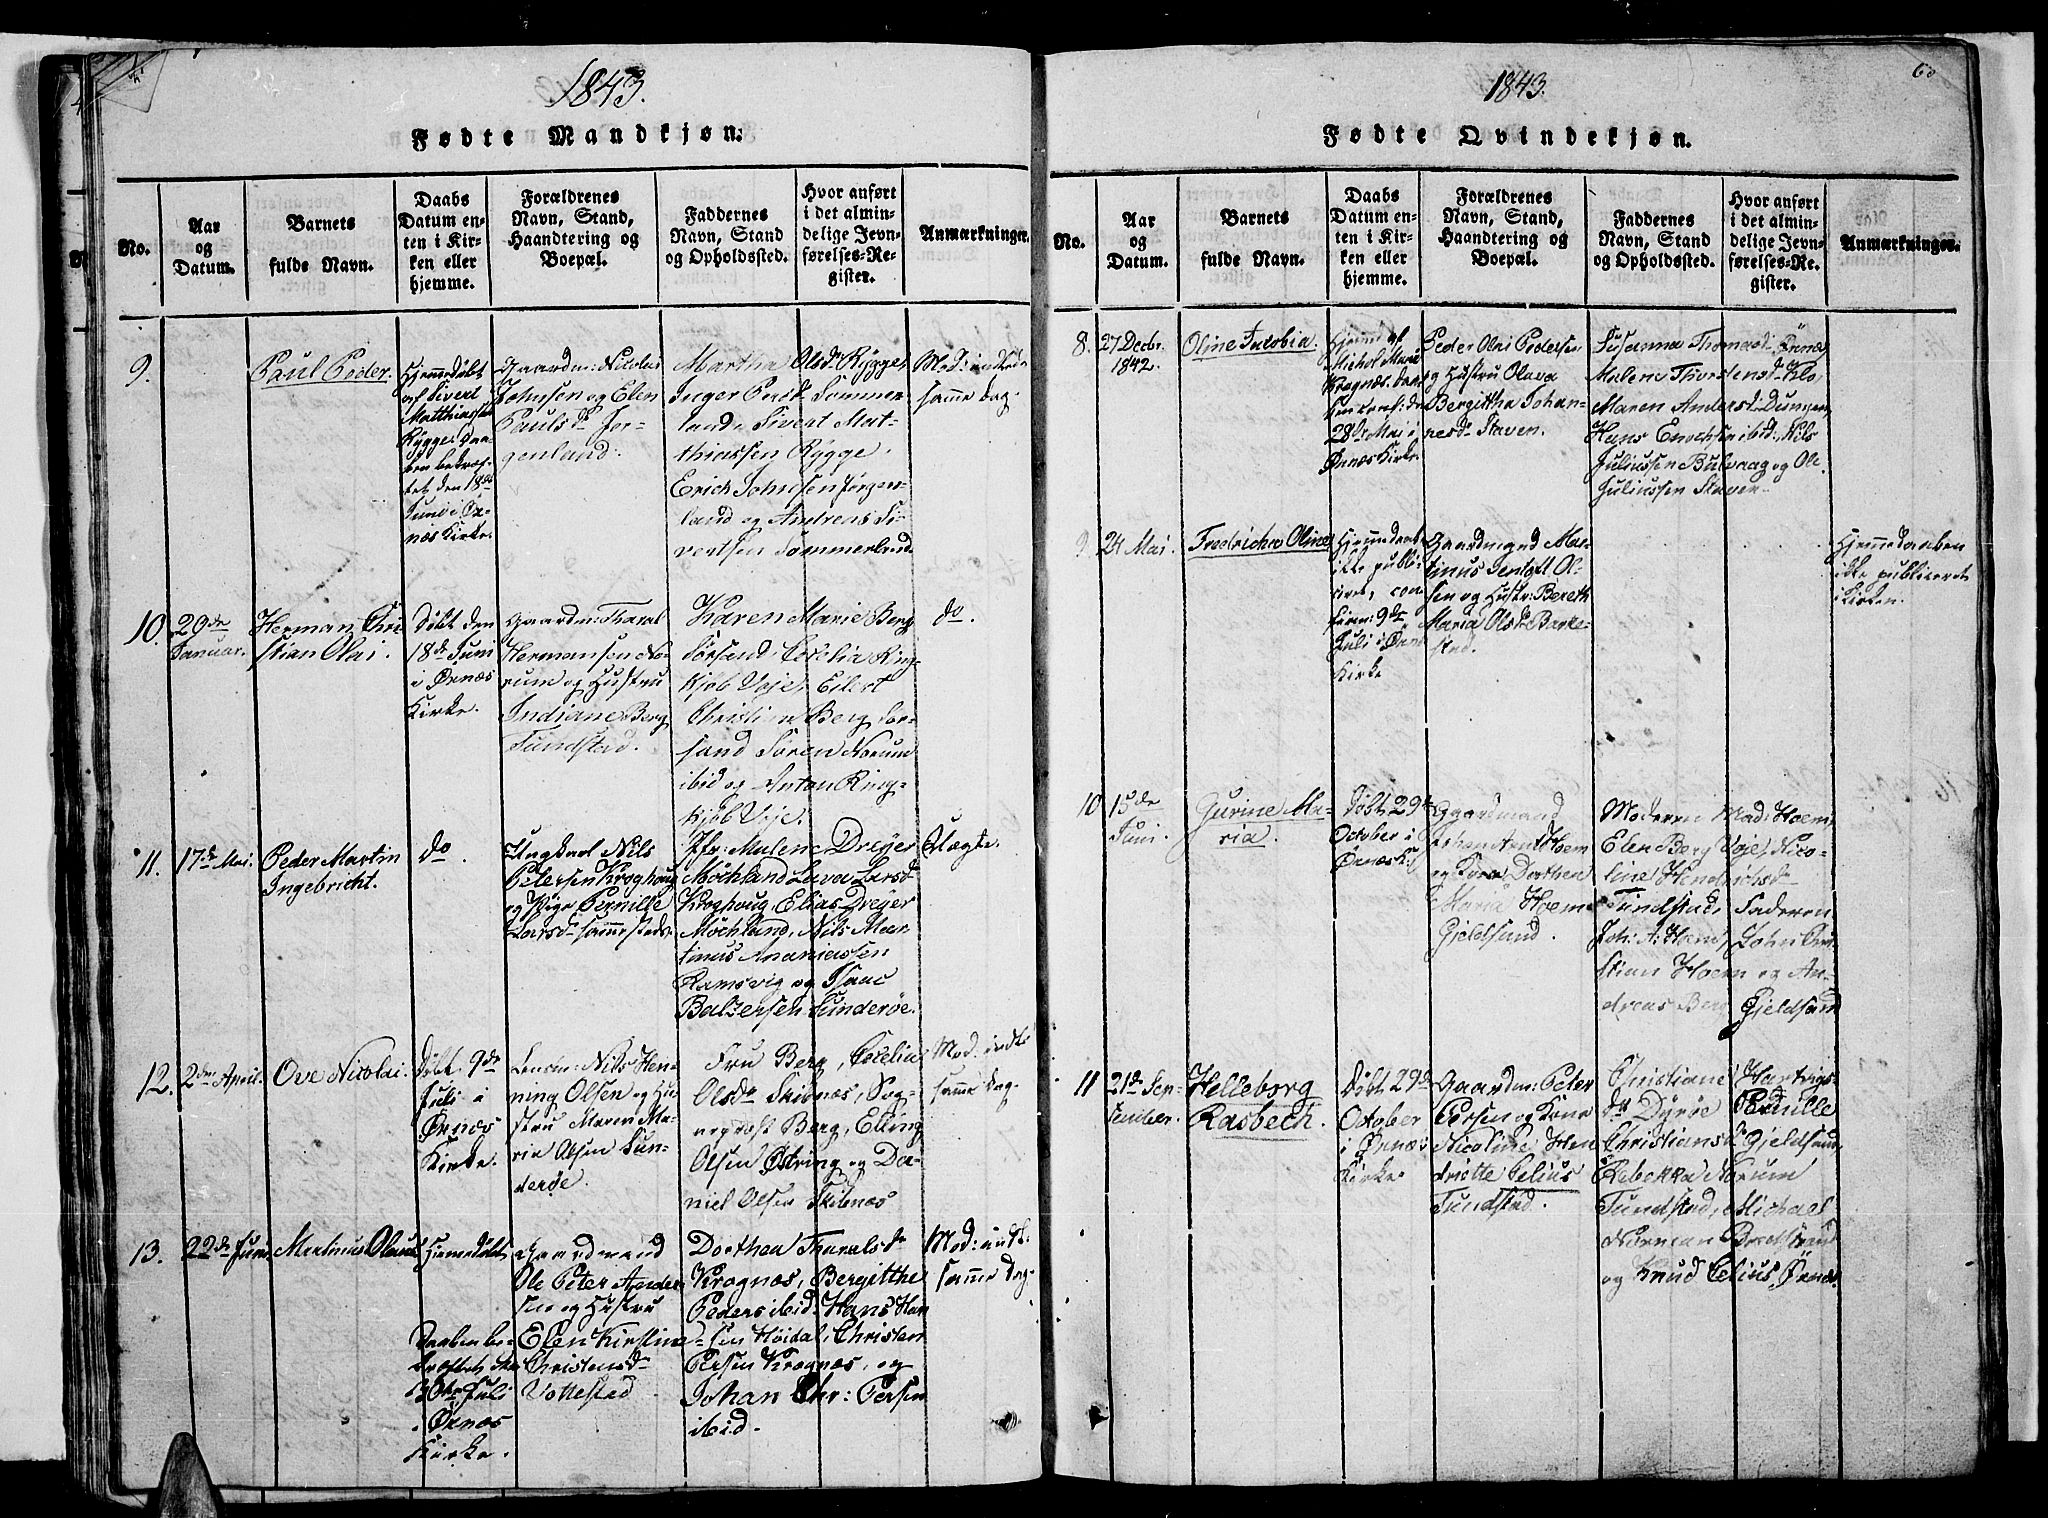 1843.
Fødte Mandkjøn.
No.
Aar
og
Datum.
Barnets
fulde Navn.
Daabs
Datum en-
ten i Kir-
ken eller
hjemme.
Forældrenes
Navn, Stand,
Haandtering og
Boepæl.
Faddernes
Navn, Stand
og Opholdssted.
Hvor anført
i det almin-
delige Jevn-
førelses-Re-
gister.
Anmærkninger.
9.
Paul Peder.
Hjemmedøbt
af Sivert
Matthiassen
Rÿgge Daa-
ben bekræf-
tet den 18de
Juni i Ør-
næs Kirke.
Gaardm: Nicolai
Johnsen og Elen
Paulsdr Jør-
genland.
Martha Olsdr Rÿgge,
Inger Sommer-
land, Sivert Mat-
thiassen Rÿgge,
Erich Johnsen Jørgen-
land og Andreas Si-
vertsen Sommerland
Mod: indledt
samme Dag.
10.
29de
Januar.
Herman Chri-
stian Olai.
Døbt den
18de Juni
i Ørnæs
Kirke.
Gaardm: Tharal
Hermansen No-
rum og Hustru
Indiane Berg
Tundstad.
Karen Marie Berg
Forsand, Cecelia Ring-
kjøb Veje, Eilert
Christian Berg For-
sand Søren Norum
ibid og Anton Ring-
kjøb Veje.
do.
11.
17de Mai.
Peder Martin
Ingebricht.
do
Ungkarl Nils
Petersen Kroghoug
og Pige Pernille
Larsdr sammesteds.
Jfr: Malene Dreÿer
Møchland Lava Larsdr
Kroghoug, Elias Dreÿer
Møchland, Nils Mar-
tinus Ananiassen
Ramsvig og Isaac
Baltzersen Sunderøe.
Uægte.
12.
2den April.
Ove Nicolai.
Døbt 9de
Juli i
Ørnæs
Kirke.
Lensm: Nils Hen-
ning Olsen og Hu-
stru Maren Ma-
ria Olsen Sun-
derøe.
Fru Berg, Cecelia
Olsdr Skibnæs, Sog-
neprost Berg, Elling
Olsen Østring og Da-
niel Olsen Skibnæs
Mod: indl:
samme Dag.
13.
22de Juni
Martinus Olaus
Hjemmedøbt
Daaben be-
kræftet den
30te Juli
i Ørnæs
Kirke.
Gaardmand
Ole Peter Ander-
sen og Hustru
Elen Kirstine
Christensdr
Vottestad
Dorthea Tharalsdr
Kragnæs, Bergitthe
Peders ibid: Hans Han-
sen Høidal, Christen
Persen Kragnæs, og
Johan Chr: Persen
ibid.
Mod: indl:
samme Dag.
1843.
60
Fødte Qvindekjøn.
No.
Aar
og
Datum.
Barnets
fulde Navn.
Daabs
Datum en-
ten i Kir-
ken eller
hjemme.
Forældrenes
Navn, Stand,
Haandtering og
Boepæl.
Faddernes
Navn, Stand
og Opholdssted.
Hvor anført
i det almin-
delige Jevn-
førelses-Re-
gister.
Anmærkninger.
8.
27 Decbr.
1842.
Oline Jacobia.
Hjemmed af
Michel
Kragnæs, Daab
28de Mai i
Ørnæs Kirke.
Peder Olai Pedersen
og Hustru Olava
Bergitha Johan-
nesdr Staven.
Susanna Thomasd: Ørnæs
Malene Thorstensdr Klo,
Maren Andersdr Dungen,
Hans Enochsen ibid:, Nils
Juliussen Bulvaag og Ole
Juliussen Staven.
9.
24 Mai.
Fredricha Oline
Hjemmedaab
ikke publi-
ceret, con-
firm: 9de
Juli i Ørnæs
Kirke
Gaardmand Mar-
tinus Jentoft Ol-
sen og Hustr: Bereth
Maria Olsdr Barke-
sted.
Hjemmedaaben
ikke publiceret
i Kirken.
10
15de
Juni.
Gurine Ma-
ria.
Døbt 29de
October i
Ørnæs K:
Gaardmand
Johan Arnt Hoem
og Kone Dorthea
Maria Hoem
Gjeldsand.
Moderen Mad: Hoem,
Elen Berg Veje, Nico-
line Hendrichsdr
Tundstad, Faderen
Joh: A: Hoem, John Chri-
stian Hoem og An-
dreas Berg Gjeldsand
11
21de Sep-
tember.
Helleborg
Rasbech.
Døbt 29de
October
i Ørnæs
Kirke
Gaardm: Peter
Persen og Kone
Nicoline Hen-
driette Celius
Tundstad.
Christiane Hartvigs-
dr Dÿrøe Pernille
Christiansdr Gjeldsand
Rebekka Norum
Tundstad, Michael
Norman Bredstrand
og Knud Celius, Ørnæs.